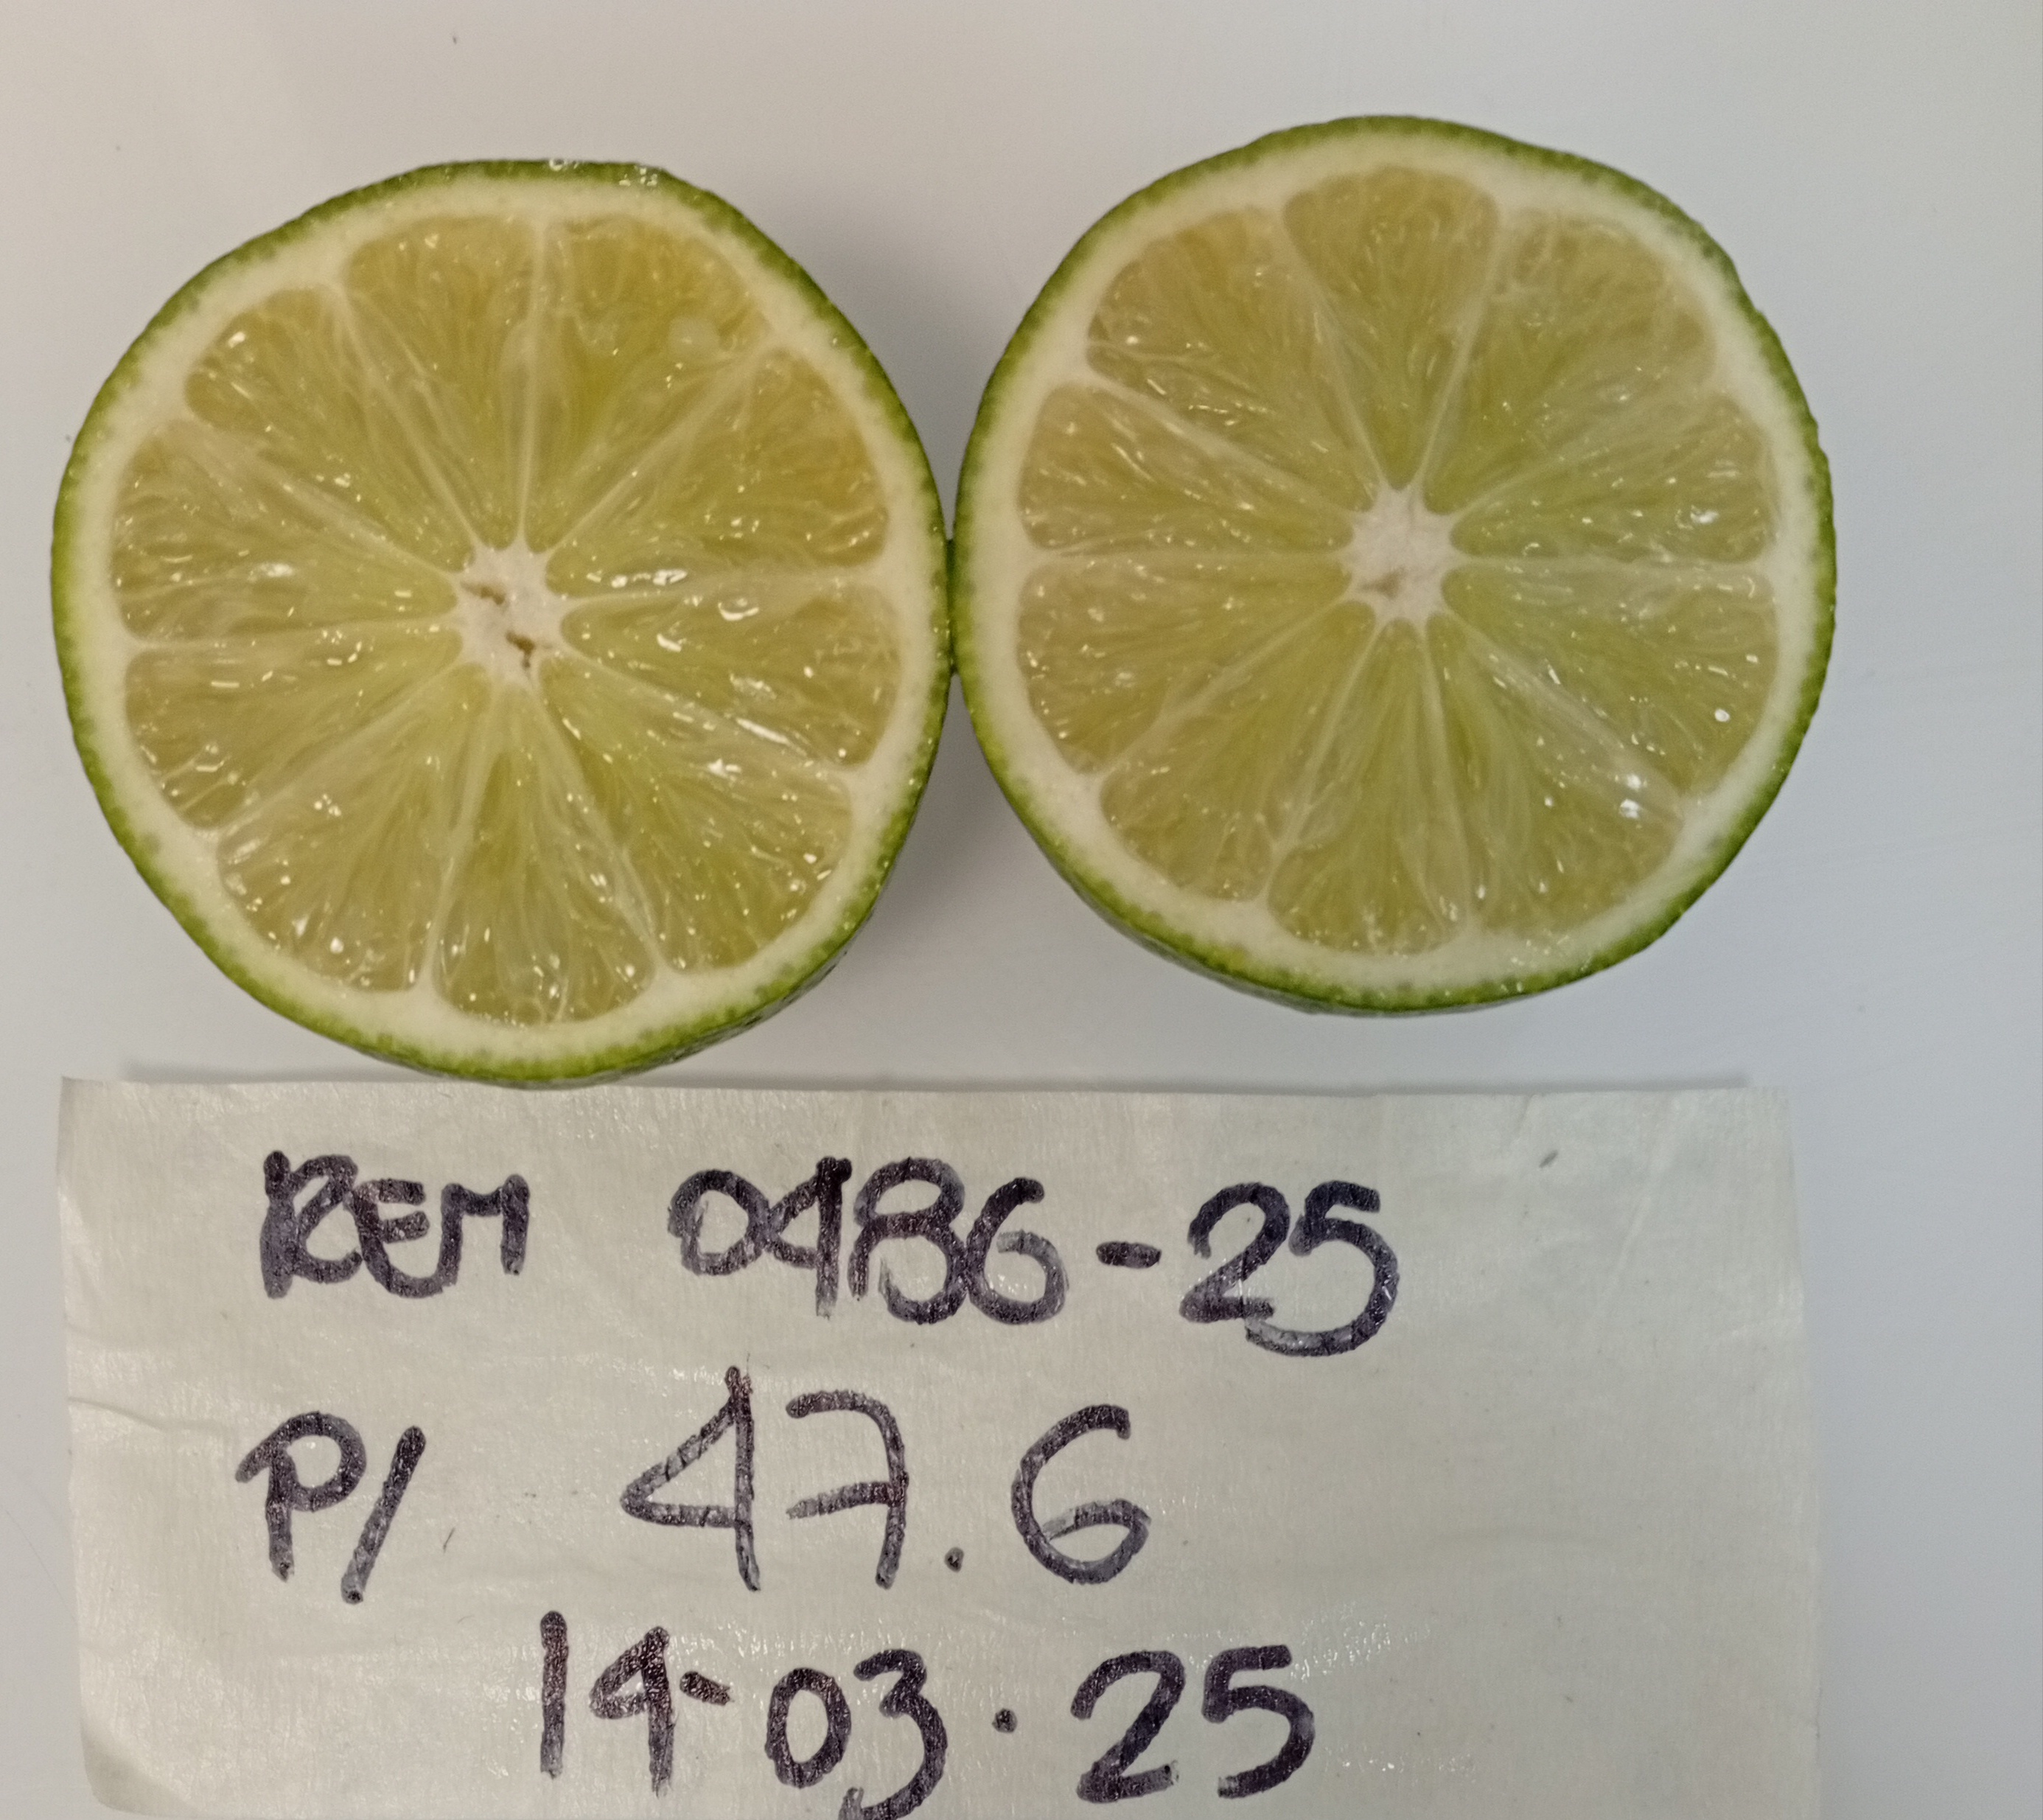 REM 0486-25
P/ 47.6
14-03.25